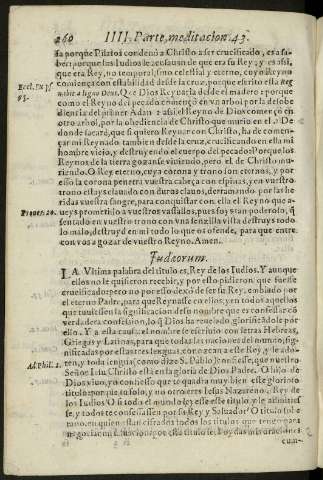 260 IIII. Parte, meditacion. 43.
sa porque Pilatos condenò a Christo a ser crucificado, es a saber porque los Iudios le acusauan de que era su Rey; y es assi, que era Rey, no temporal, sino celestial y eterno, cuyo Reyno
Eccl. in ps. 95.
començaria con estabilidad desde la cruz, porque escrito està Regnabit a ligno Deus. Que Dios Reynaria desde el madero: porque
como el Reyno del pecado començò en vn arbol por la desobediencia del primer Adan: assi el Reyno de Dios començò en
otro arbol, por la obediencia de Christo que murio en el. De
donde sacarè, que si quiero Reynar con Christo, ha de començar mi Reynado tambien desde la cruz, crucificando en ella mi
hombre viejo, y destruyendo el cuerpo del pecado: porque los
Reynos de la tierra gozanse viuiendo, pero el de Christo muriendo. O Rey eterno, cuya corona y trono son eternos, y por
esso la corona penetra vuestra cabeça con espinas, y en vuestro
trono estays clauado con duros clauos, derramando por las heridas vuestra sangre, para conquistar con ella el Reyno que aueys prometido a vuestros vassallos, pues soys tan poderoso, que
Prouer. 20.
sentado en vuestro trono con vna senzilla vista destruys todo
lo malo, destruyd en mi todo lo que os ofende, para que entre
con vos a gozar de vuestro Reyno. Amen.
Iudeorum.
LA Vltima palabra del titulo es, Rey de los Iudios. Y aunque
ellos no le quisieron recebir, y por esso pidieron que fuesse
crucificado: pero no por esso dexò de ser su Rey, embiado por
el eterno Padre, para que Reynasse en ellos, y en todos aquellos
que tuuiessen la significacion desse nombre que es confessar
verdadera confession, los Dios ha reuelado, glorificado le por
ello. Y a esta causa el nombre se escriuio con letras Hebreas,
Griegas y Latinas, para que todas las naciones del mundo, significadas por estas tres lenguas, conozcan a este Rey, y le adoren,
Ad Phil. 2.
y toda lengua (como dize S. Pablo) confiesse, que nuestro
Señor Iesu Christo està en la gloria de Dios Padre. O hijo de
Dios viuo, yo confiesso que te quadra muy bien este glorioso
titulo: porque tu solo, y no otro eres Iesus Nazareno, Rey de
los Iudios. O si todo el mundo leyesse este titulo, y le admitiesse, y todos te confessassen por su Rey y Saluador. O titulo
en quien estan cifrados todos los titulos que tengo para